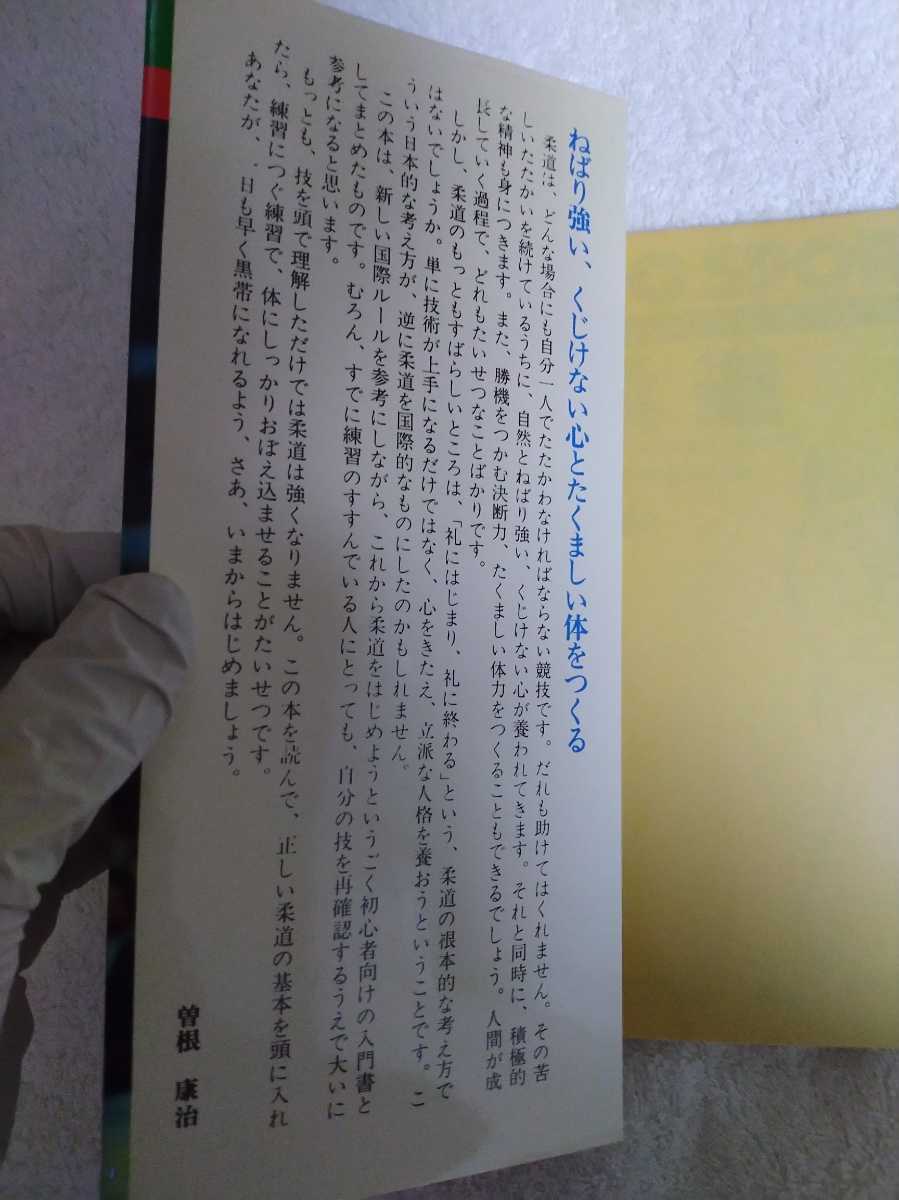 ねばり強い、くじけない心とたくましい体をつくる
柔道は、どんな場合にも自分一人でたたかわなければならない競技です。だれも助けてはくれません。その苦
しいたたかいを続けているうちに、自然とねばり強い、くじけない心が養われてきます。それと同時に、積極的
な精神も身につきます。また、勝機をつかむ決断力、たくましい体力をつくることもできるでしょう。人間が成
長していく過程で、どれもたいせつなことばかりです。
しかし、柔道のもっともすばらしいところは、「礼にはじまり、礼に終わる」という、柔道の根本的な考え方で
はないでしょうか。単に技術が上手になるだけではなく、心をきたえ、立派な人格を養おうということです。こ
ういう日本的な考え方が、逆に柔道を国際的なものにしたのかもしれません。
この本は、新しい国際ルールを参考にしながら、これから柔道をはじめようというごく初心者向けの入門書と
してまとめたものです。むろん、すでに練習のすすんでいる人にとっても、自分の技を再確認するうえで大いに
参考になると思います。
もっとも、技を頭で理解しただけでは柔道は強くなりません。この本を読んで、正しい柔道の基本を頭に入れ
たら、練習につぐ練習で、体にしっかりおぼえ込ませることがたいせつです。
あなたが、一日も早く黒帯になれるよう、さあ、いまからはじめましょう。
曽根 康治